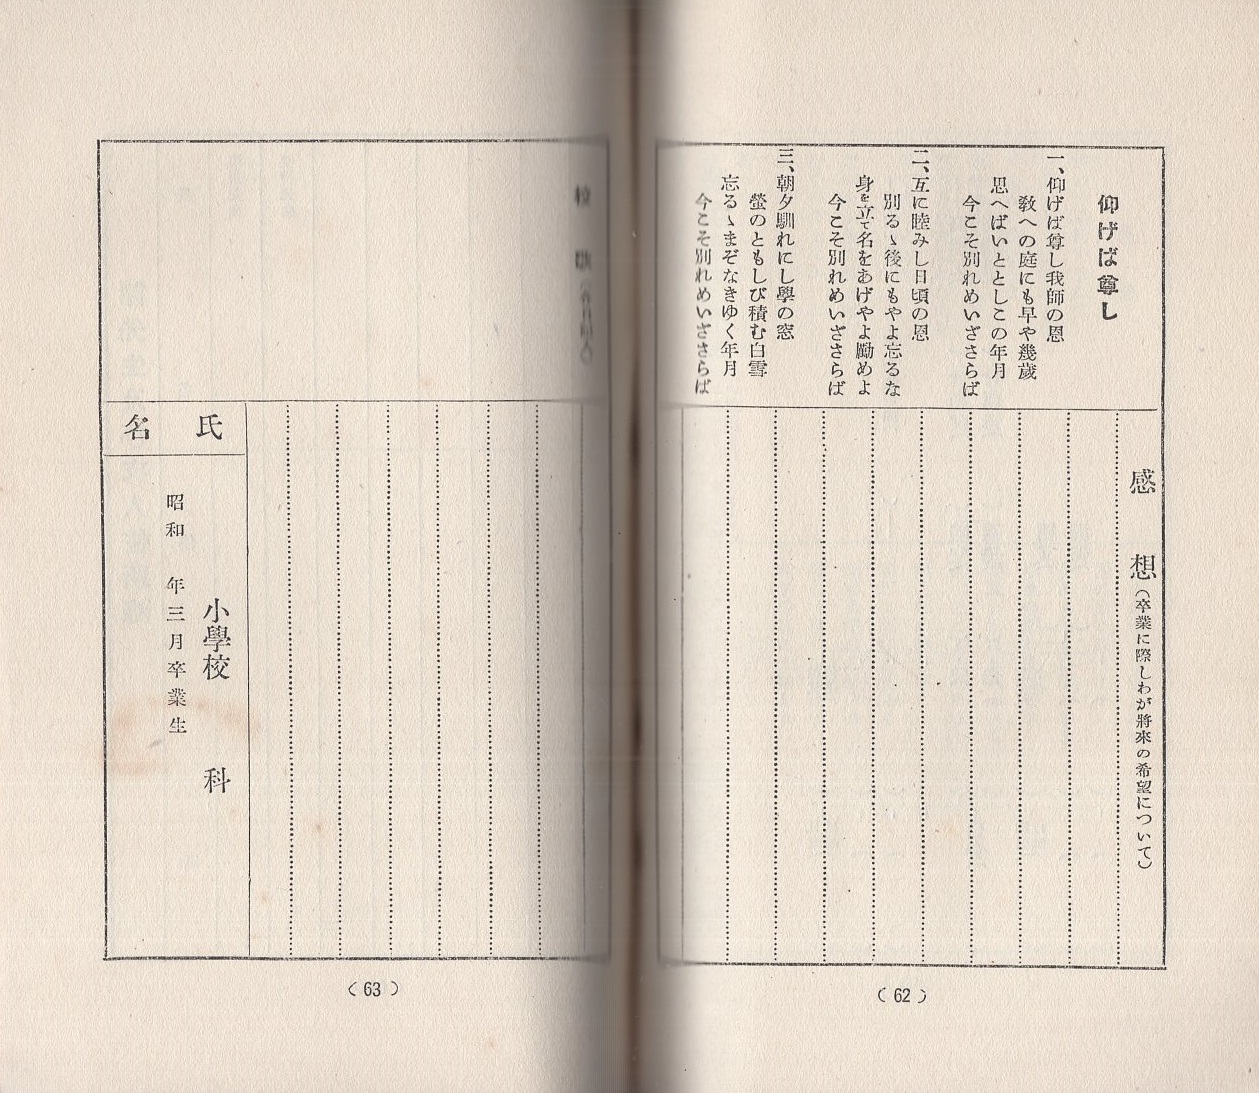 仰げば尊し
一、仰げば尊し我師の恩
敎への庭にも早や幾歲
思へばいととしこの年月
今こそ別れめいざさらば
二、互に睦みし日頃の恩
別るゝ後にもやよ忘るな
身を立て名をあげやよ勵めよ
今こそ別れめいざさらば
三、朝夕馴れにし學の窓
螢のともしび積む白雪
忘るゝまぞなきゆく年月
今こそ別れめいざさらば
感想(卒業に際しわが將來の希望について)
(62)
校歌
氏名
小學校 科
昭和 年三月卒業生
(63)